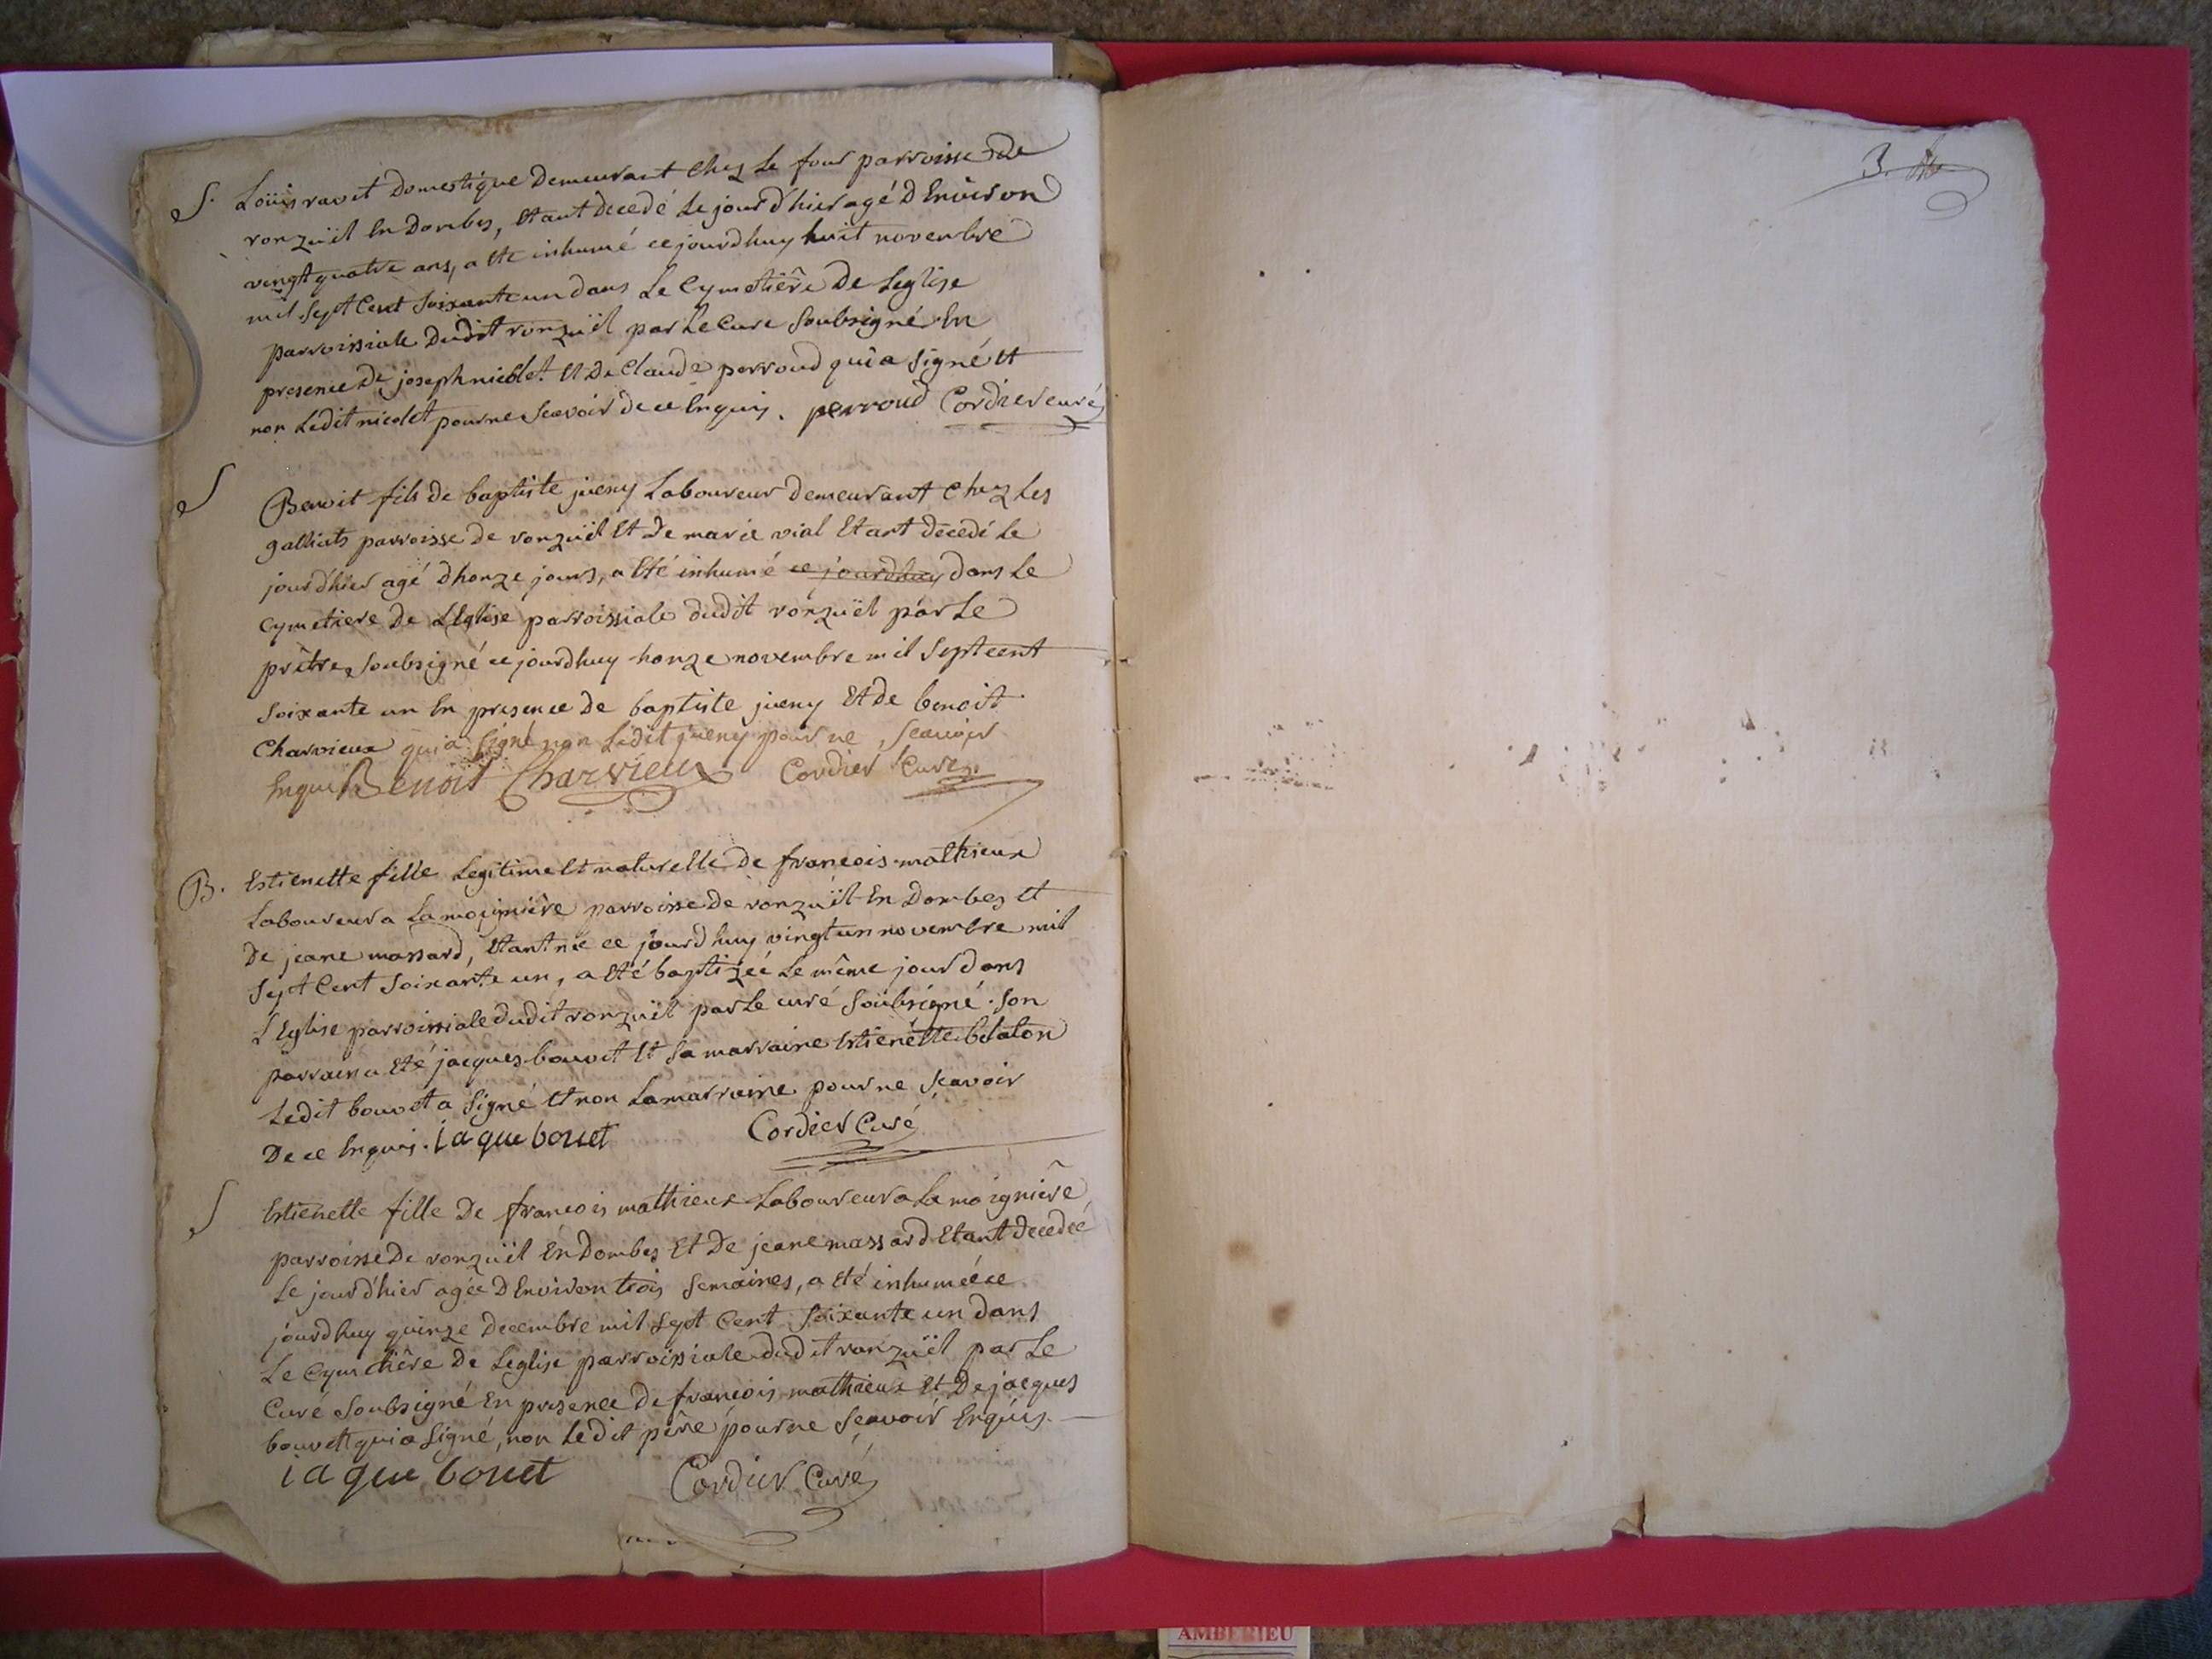 S. Loüis ravet Domestique Demeurant chez Le four parroisse De
ronzuël En Dombes, Etant decedé Le jour d'hier agé D'Environ
vingt quatre ans, a Ete inhumé ce jourdhuy huit novembre
mil Sept Cent Soixante un dans Le Cymetiére De Leglise
parroissiale Dudit ronzuël par Le Cure Soubsigné En
presence De joseph nicolet Et De Claude perroud qui a Signé Et
non Ledit nicolet pour ne Scavoir De ce Enquis. perroud Cordier curé
S Benoit fils de baptiste jueny Laboureur demeurant chez Les
galliats parroisse de ronzuël Et De marie vial Etant decedé Le
jour d'hier agé dhonze jours, a Eté inhumé ce jourdhuy dans Le
Cymetiere De LEglise parroissiale dudit ronzuël par Le
prêtre Soubsigné ce jourdhuy honze novembre mil Sept cent
Soixante un En presence De baptiste jueny Et de benoit
Charvieux qui a Signé non Ledit jueny pour ne Scavoir
Enquis Benoit Charvieux Cordier Curé
B. Estienette fille Legitime Et naturelle De francois mathieux
Laboureur a La moiginiére parroisse De ronzuïl En Dombes Et
De jeane massard, Etant née ce jourdhuy vingt un novembre mil
Sept Cent Soixante un, a Eté baptizeé Le même jour dans
L'Eglise parroissiale dudit ronzuïl par Le curé Soubsigné. Son
parrain a Eté jacques bouvet Et Sa marraine Estienette belaton
Ledit bouvet a Signé Et non La marraine pour ne Scavoir
De ce Enquis. iaque bouet Cordier Curé
S Estienette fille De francois mathieux Laboureur a La moigniére
parroisse De ronzuïl En Dombes Et De jeane massard Etant decedeé
Le jour d'hier agée D'Environ trois Semaines, a Eté inhumée ce
jourdhuy quinze Decembre mil Sept Cent Soixante un dans
Le Cymetiére De Leglise parroissiale dudit ronzuïl par Le
Curé Soubsigné En presence De francois mathieux Et De jacques
bouvet qui a Signé, non Ledit pére pour ne Scavoir Enquis.
iaque bouet Cordier Curé
3.
AMBERIEU